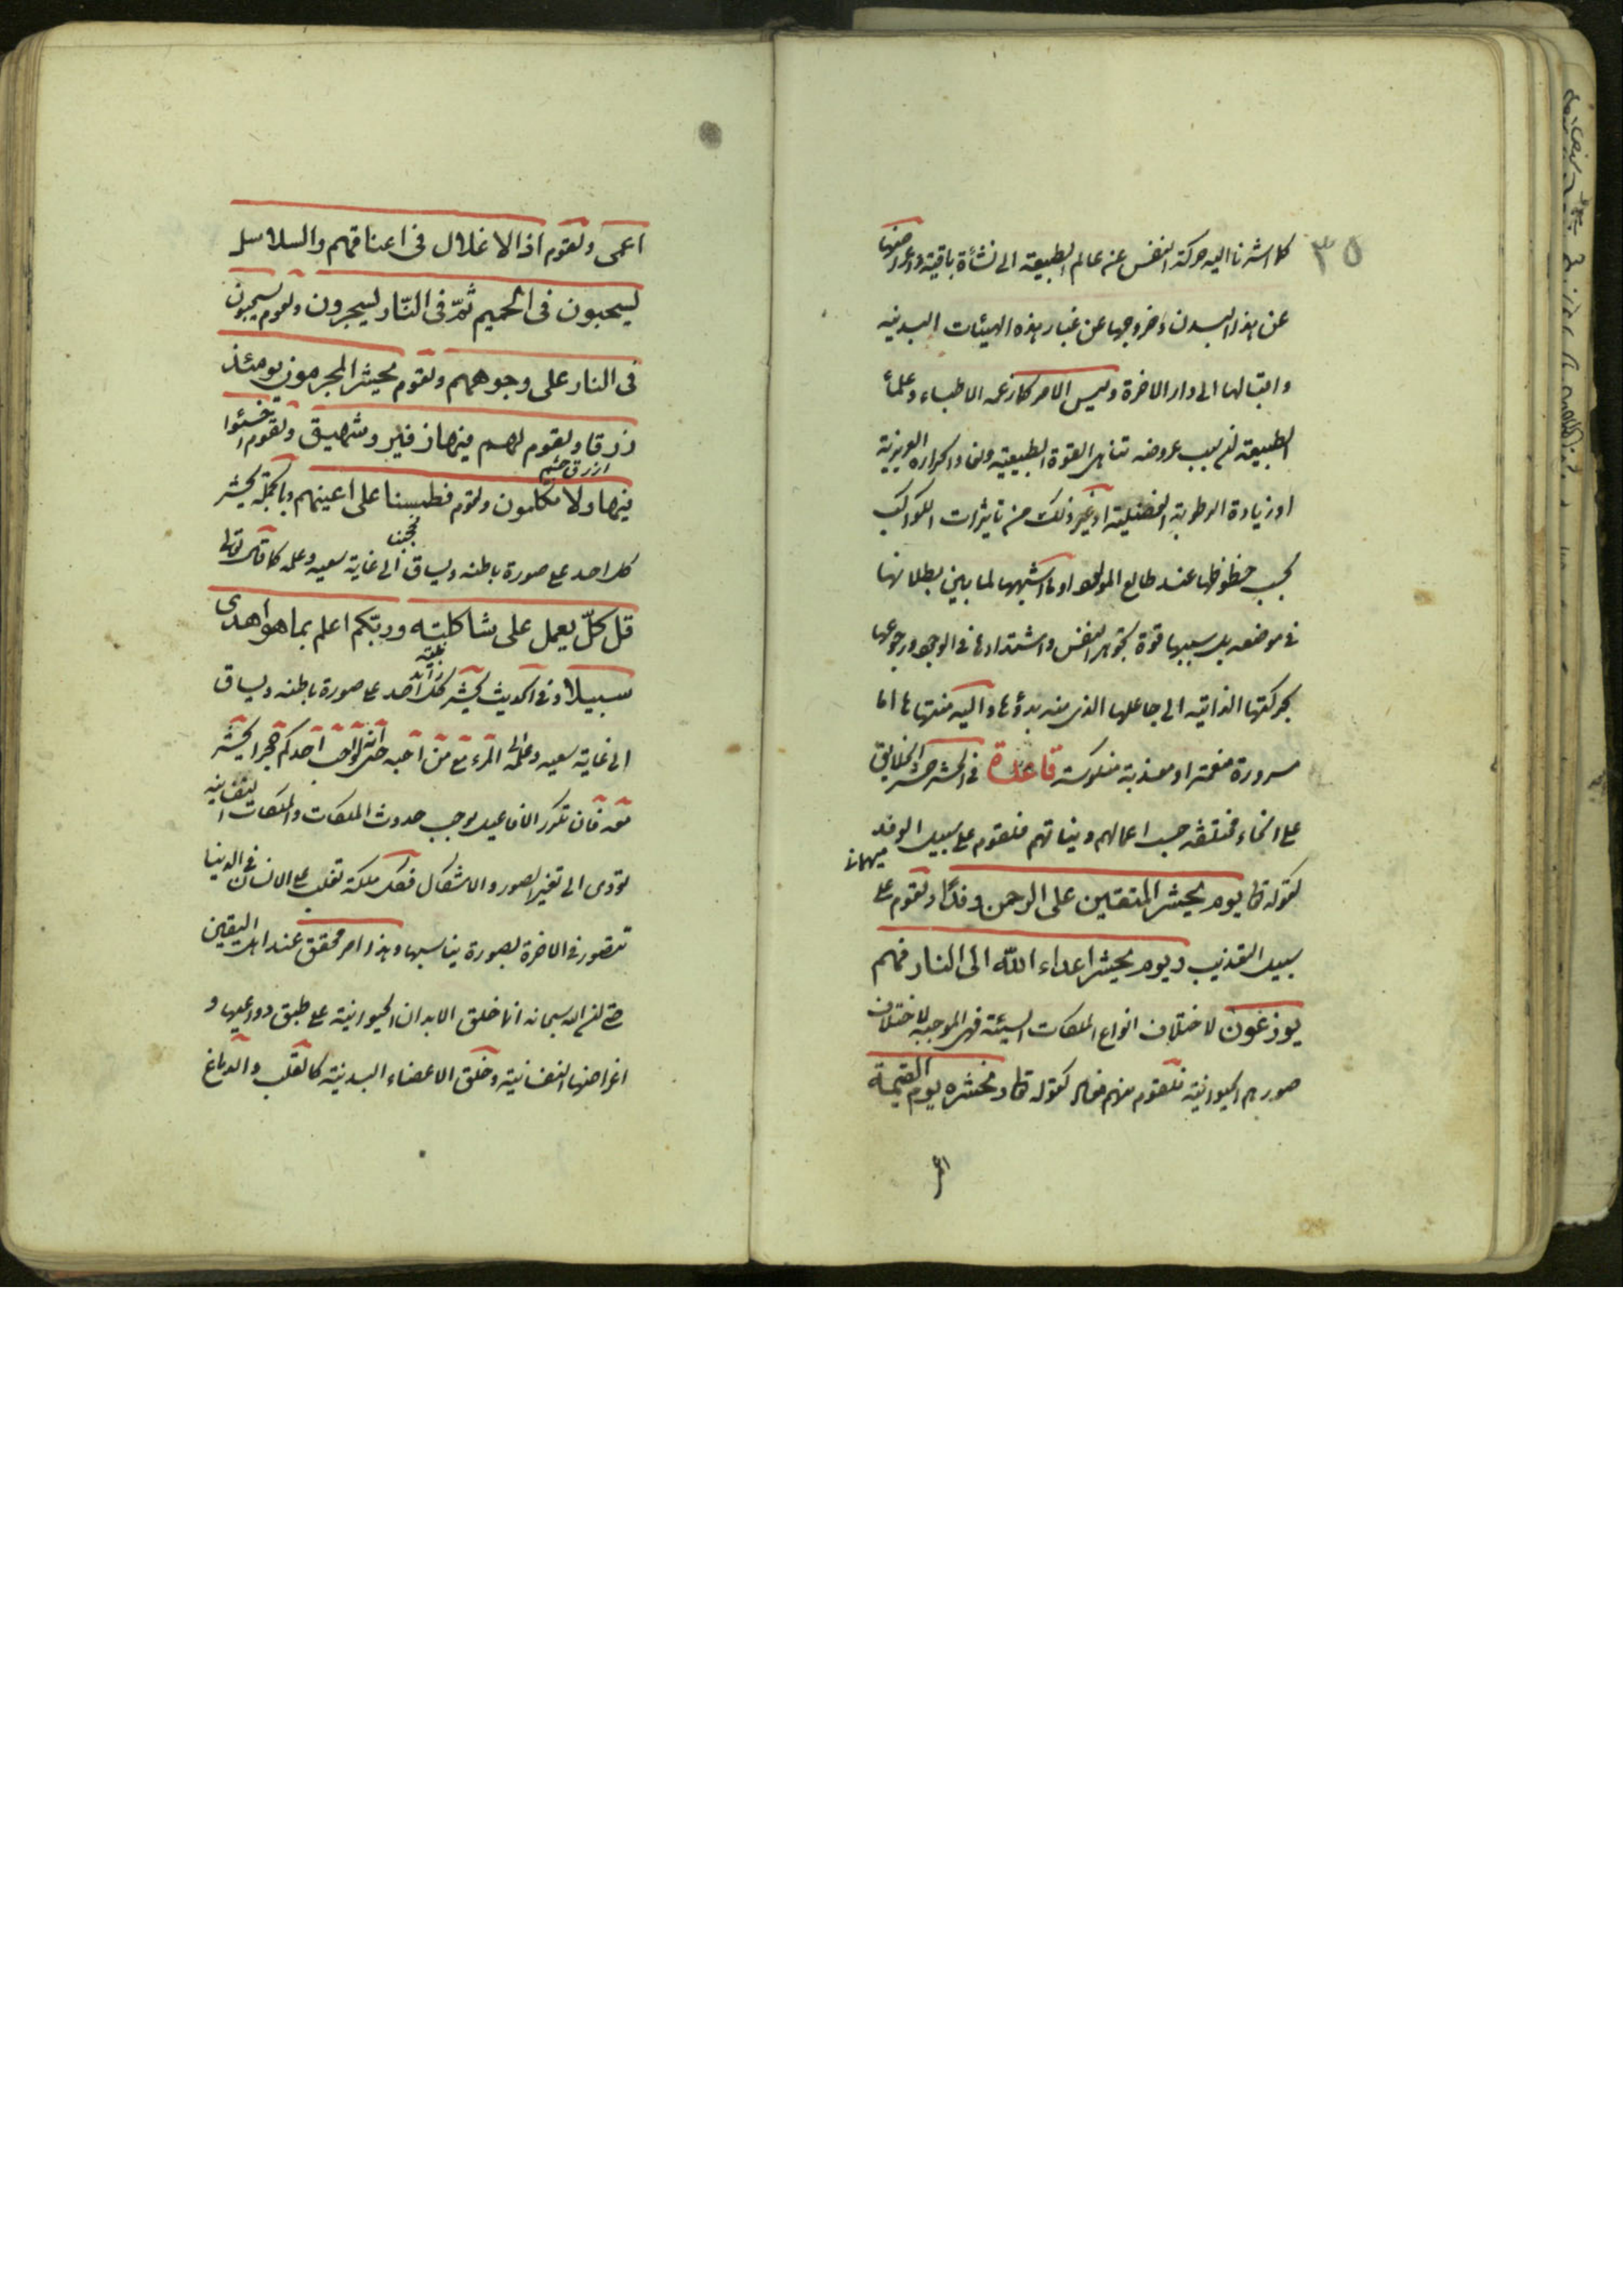 ٣٥
كما اشرنا اليه حركة النفس عن عالم الطبيعة الى نشأة باقية و اعراضها
عن هذا البدن و خروجها عن غبار هذه الهيئات البدنيه
و اقبالها الى دار الاخرة و ليس الامر كما زعمه الاطباء و علماء
الطبيعة ان سبب عروضه تناهى القوة الطبيعية و نفاد الحرارة الغريزية
او زيادة الرطوبة الفضلية او غير ذلك من تاثيرات الكواكب
بحسب حظوظها عند طالع المولود او ما اشبهها لما بين بطلانها
فى موضعه بل سببها قوة تجوهر النفس و اشتدادها فى الوجود و رجوعها
بحركتها الذاتيه الى جاعلها الذى منه بدؤها و اليه منتهاها اما
مسرورة منعمة او معذبة منكوسة قاعدة فى الحشر حشر الخلايق
على انحاء مختلفه حسب اعمالهم و نياتهم فلقوم على سبيل الوفد
ميهمان
كقوله تعا يوم يحشر المتقين على الرحمن وفدًا و لقوم على
سبيل التعذيب و يوم يحشر اعداء اللّه الى النار فهم
يوزعون لاختلاف انواع الملكات السيئة فهى الموجبه لاختلاف
صورهم الحيوانية فلقوم منهم كقوله تعا و نحشره يوم القيمة
اعمى
اعمى و لقوم اذ الاغلال فى اعناقهم و السلاسل
يسحبون فى الحميم ثمّ فى النّار يسجرون و لقوم يسحبون
فى النار على وجوههم و لقوم نحشر المجرمون يومئذ
زرقا و لقوم لهم فيها زفير و شهيق و لقوم اخسئوا
ازرق چشم
فيها و لا تكلمون و لقوم فطمسنا على اعينهم و بالجملة يحشر
كل احد على صورة باطنه و يساق الى غاية سعيه و عمله كما قال تعالى
قل كلّ يعمل على شاكلته و ربّكم اعلم بما هو اهدى
سبيلا و فى الحديث يحشر كل احد على صورة باطنه و يساق
الى غاية سعيه و عمله المرء مع من احبه حتى انه لو احب احدكم حجرا يحشر
معه فان تكرر الافاعيل يوجب حدوث الملكات و الملكات النفسانيه
تؤدى الى تغير الصور و الاشكال فكل ملكة تغلب على الانسان فى الدنيا
تتصور فى الاخرة بصورة يناسبها و هذا امر محقق عند اهل اليقين
حتى ان الله سبحانه انما خلق الابدان الحيوانية على طبق دواعيها و
اغراضها النفسانية و خلق الاعضاء البدنية كالقلب و الدماغ